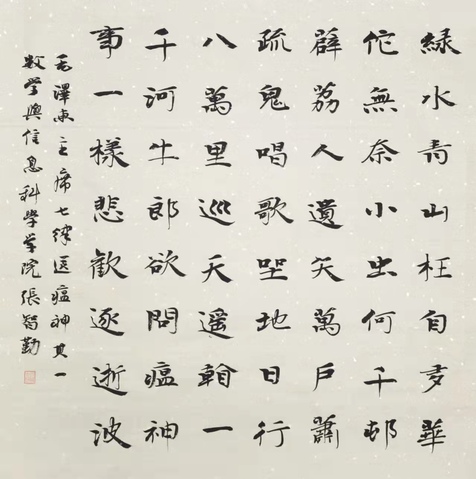 綠水青山枉自多華
佗無奈小虫何千邨
薜荔人遺矢萬戶蕭
疏鬼唱歌坐地日行
八萬里巡天遙看一
千河牛郎欲問瘟神
事一樣悲歡逐逝波
毛澤東主席七律送瘟神其一
数学與信息科學学院張智勤